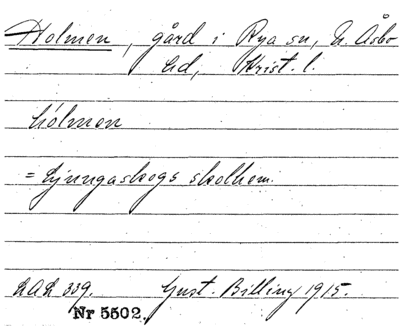 Holmen, gård i Rya sn, N. Åsbo
hd, Krist. l.
hólmen
= Ljungaskogs skolhem.
LAL 339. Gust. Billing 1915.
Nr 5502.